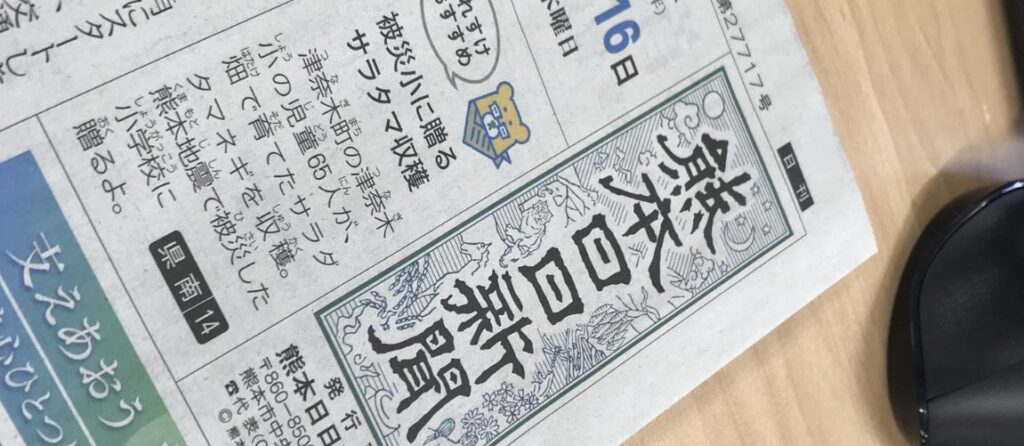 第27717号
日刊
熊本日日新聞
16日
木曜日
おすすめ
被災小に贈る
サラタマ収穫
津奈木町の津奈木
小の児童65人が、
畑で育てたサラダ
タマネギを収穫。
熊本地震で被災した
小学校に
贈るよ。
県南 14
発行
熊本日日
〒860-850
熊本市中央
支えあおう
心ひとつ